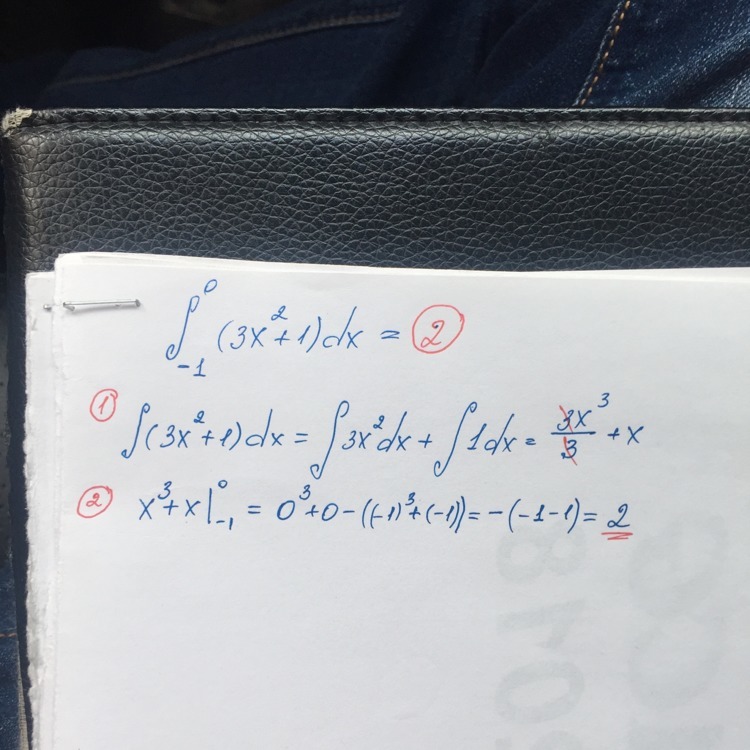 ∫₋₁⁰ (3x²+1)dx = 2
① ∫(3x²+1)dx = ∫3x²dx + ∫1dx = 3x³/3 + x
② x³+x|₋₁⁰ = 0³+0-((-1)³+(-1))=-(-1-1)= 2